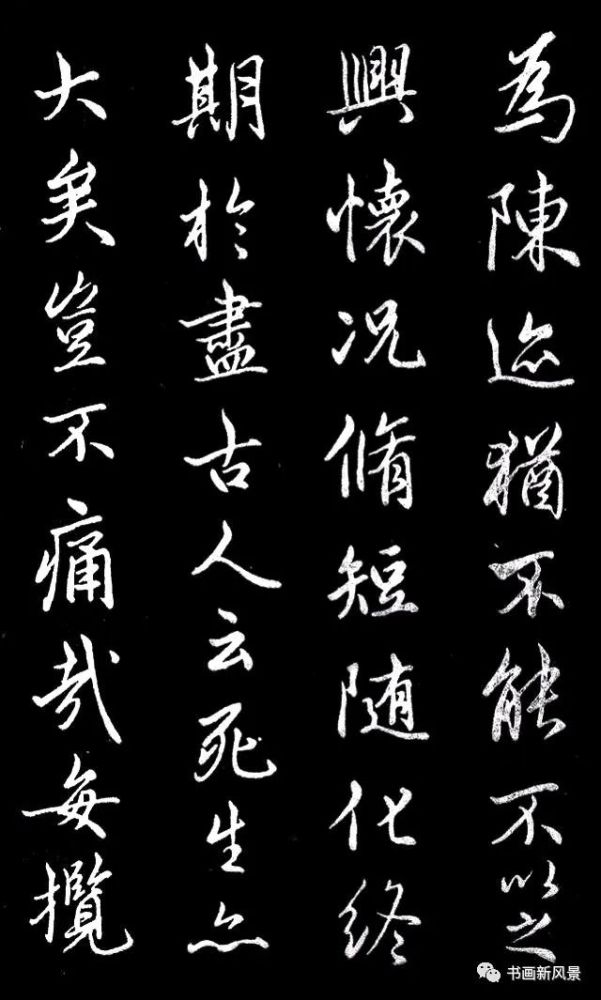 為陳迹猶不能不以之
興懷况脩短随化終
期於盡古人云死生亦
大矣豈不痛哉每攬
书画新风景